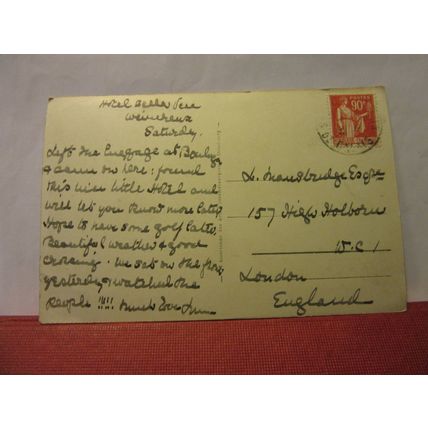 Hotel Bella
Wimereux
Saturday.
Left the Luggage at
& came on here: found
this nice little Hotel and
will let you know more later
Hope to have some golf later
Beautiful weather & good
crossing. We sat on the
yesterday & watched the
people !!!! Much love
POSTES
90c
L. Mansbridge Esqre
157 High Holborn
W.C.1
London
England